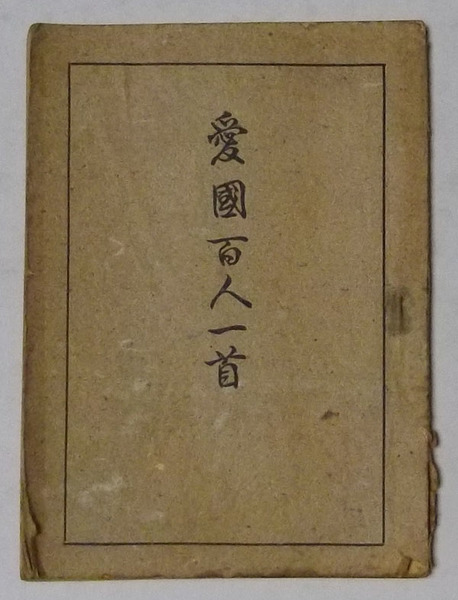 愛國百人一首